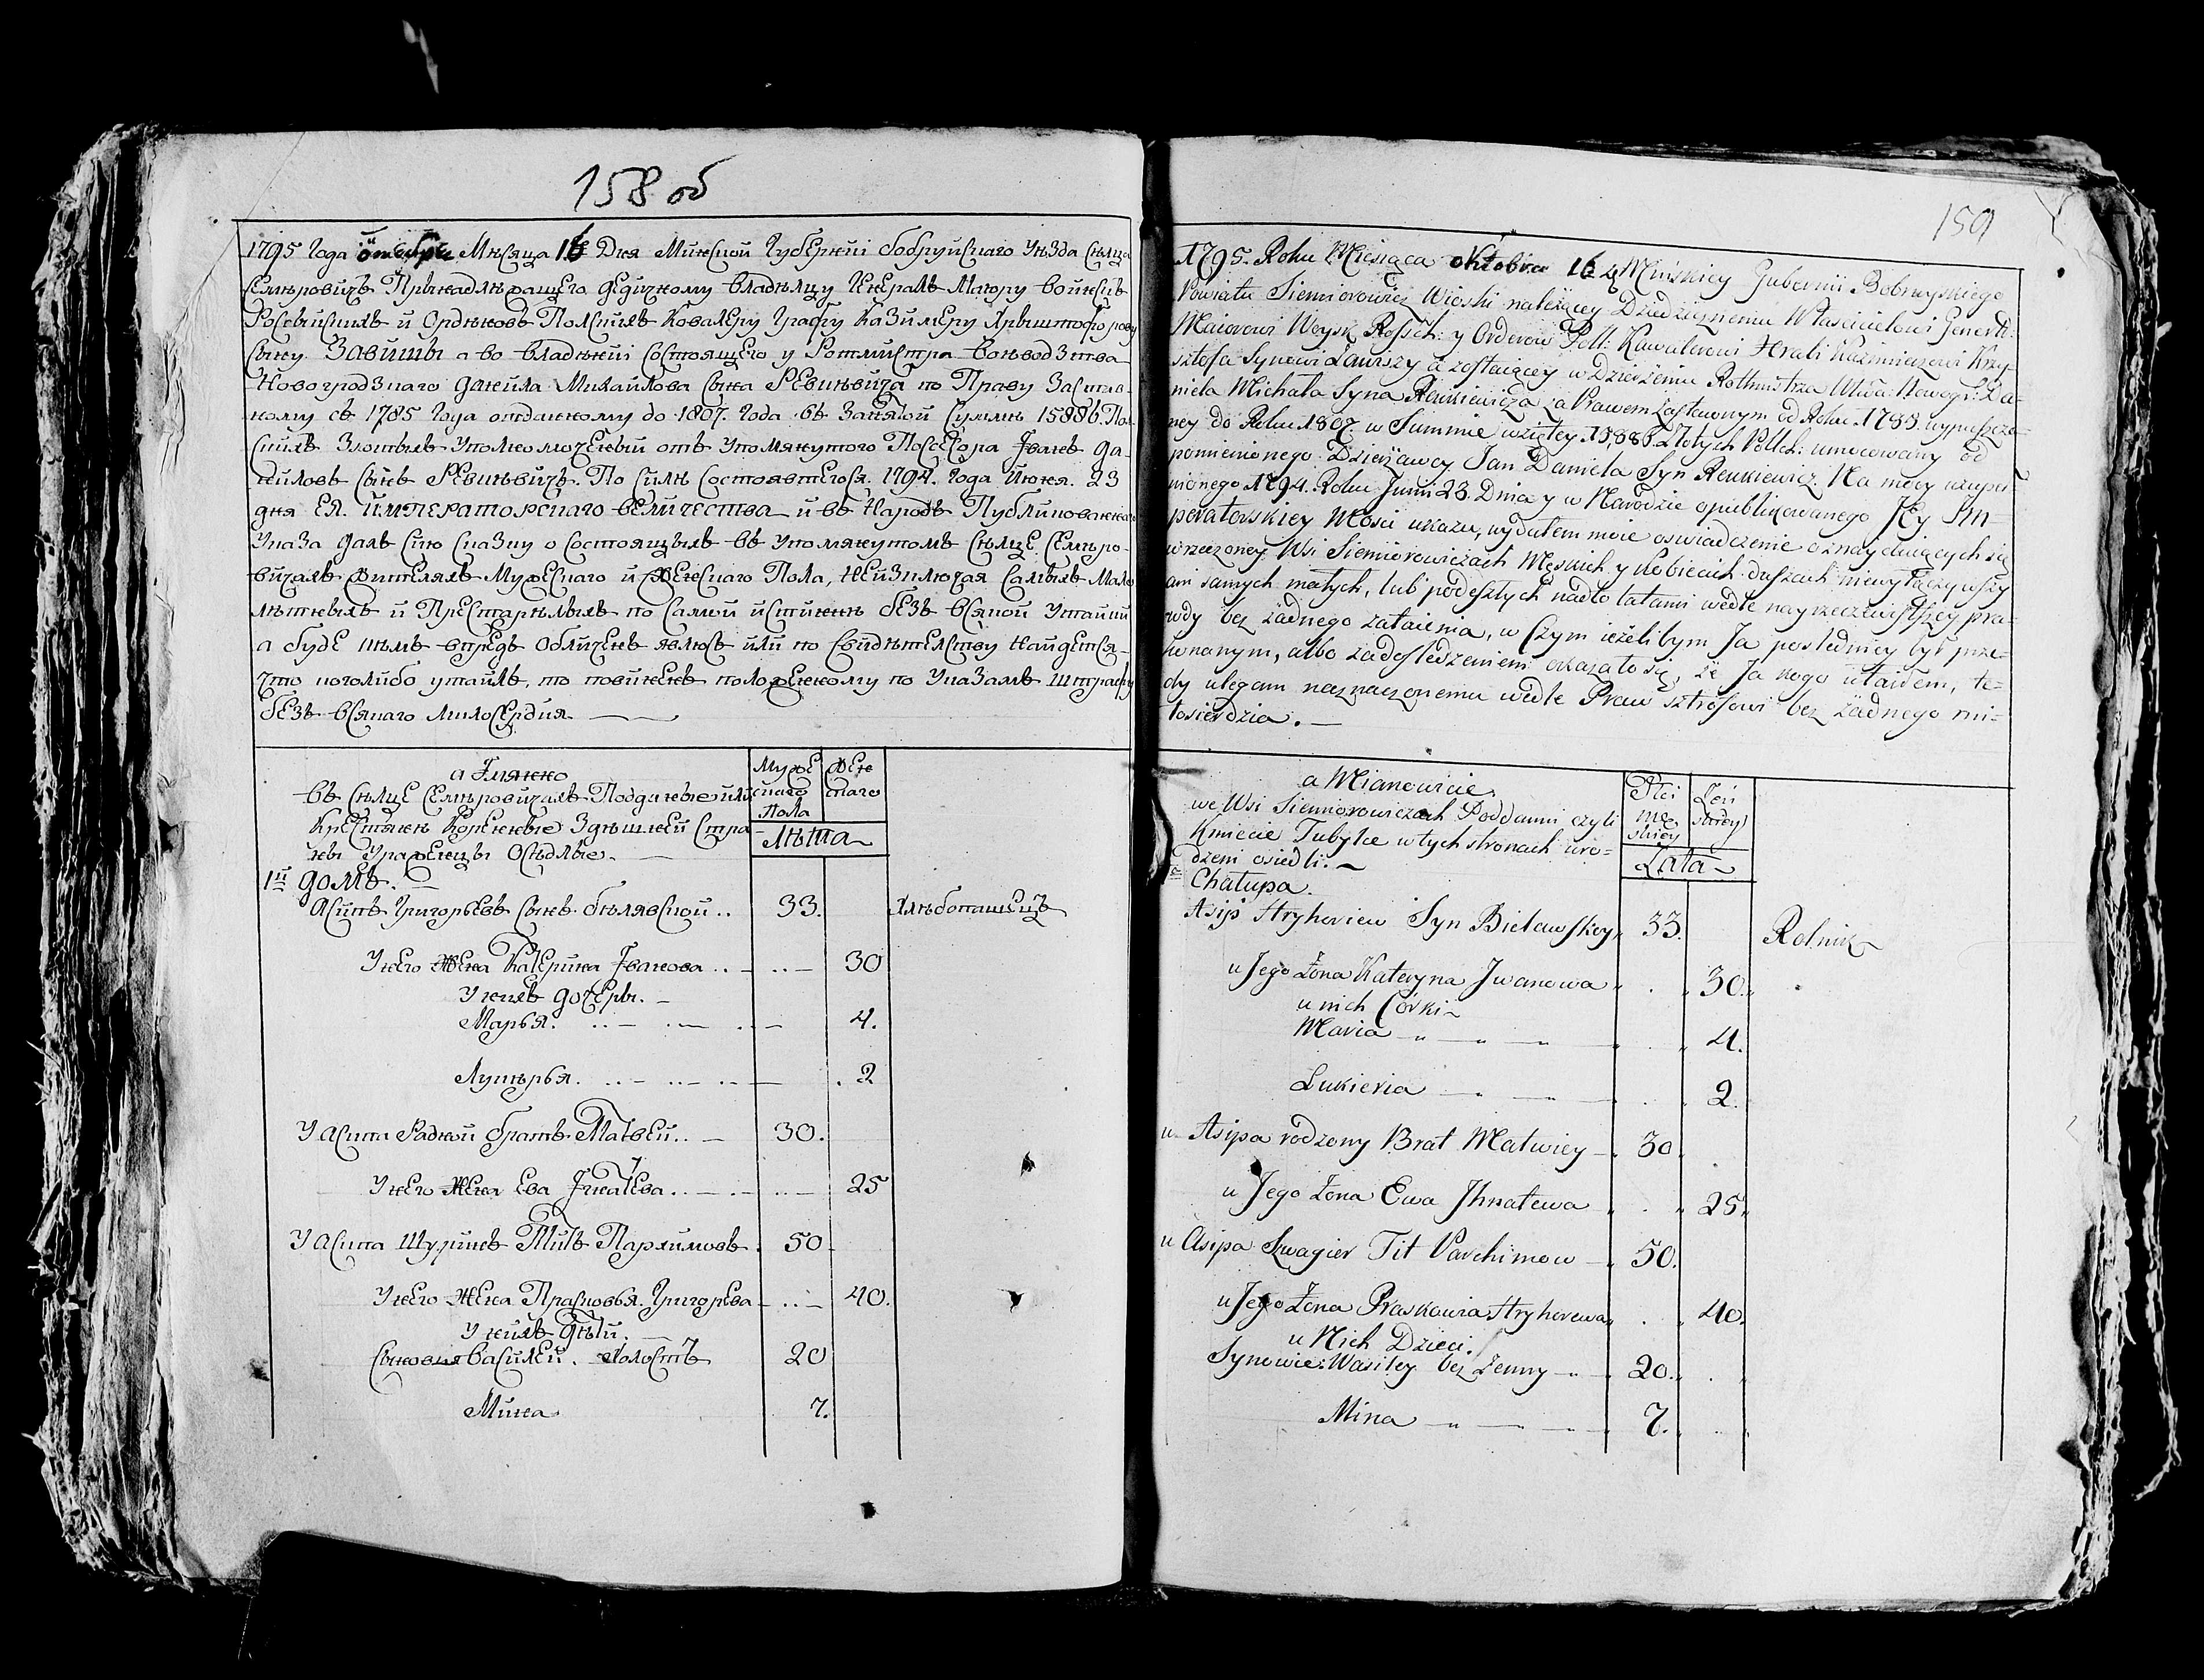 158 об
1795 Года октебря Мѣсяца 16 Дня Минской Губернйі бобруйскаго Уѣзда сѣлца
Семѣровичъ Прынадлѣжащего дедичному владѣлцу Генералъ Маиору войнсцъ
Росвйскихъ й Орденовъ Полскихъ Ковалеру Графу Казимеру Хрыштофорову
сыну Завишы а во владѣнйі состоящего у Ротмистра воеводзтва
Новогродзкаго данейла Михайлова сына Ревинѣвича по Праву Застав-
ному съ 1785 Года отданному до 1807. Года въ занятой суммѣ 15886. Пол-
скихъ Злотыхъ Уполномоченый отъ Упомянутого Посесора Іванъ да-
нйловъ сынъ Ревинѣвичъ. По силѣ состоявшегося. 1794. Года Июня. 23
дня ЕЯ. Императорскаго величества й въ Народъ Публикованнаго
Указа далъ сию сказку о состоящыхъ въ Упомянутомъ сѣлце Семѣро-
вичахъ жителяхъ Мужескаго й женскаго Пола, нейзключая самыхъ Мало
лѣтныхъ й Престарѣлыхъ по самой истиннѣ безъ всякой Утайки
а буде кѣмъ впредь обличенъ явлюсъ илй по свйдѣтелству найдется
Что коголибо утайлъ, то повиненъ положенному по Указамъ штрафу
безъ всякаго милосердия.
а Імянно
въ сѣлце Семѣровичахъ Подданые илй
Крестянѣ Коренные Здѣшней стра-
ны Уроженцы осѣдлые.
Муже
скаго
Пола
Жен
скаго
Лѣта
1й домъ.
Асипъ Григорьевъ сынъ бѣлявской.. 33. Хлѣбопашецъ
У него Жена Катерина Іванова.. 30
У нихъ дочеры.
Марья. 4.
Лукѣрья. 2
У Асипа Радной братъ Матвей.. 30.
У него Жена Ева Ігнатева.. 25
У Асипа Шуринъ Титъ Пархимовъ. 50
У него Жена Прасковья Григорева 40.
У нйхъ дѣтй.
сыновия василей. холостъ 20
Мина 7.
159
1795. Roku Miesiąca oktobra 16 d. Minskiey Gubernii Bobruyskiego
Powiatu Siemiorowicz Wioski należącey Dziedzicznemu Właścicielowi Generał:
Maiorowi Woysk Rossch: y Orderow Poll: Kawalerowi Hrabi Kazimierzowi Krzy-
sztofa Synowi Zawiszy a zostaiącey w Dzierżeniu Rotmistrza Wtwa: Nowogr: Da-
niela Michała Syna Rewkiewicza za Prawem Zastawnym od Roku 1785. wypuszczo-
ney do Roku 1807. w Summie wziętey 15886. Złotych Polsch: umocowany od
pomienionego Dzierżawcy Jan Daniela Syn Rewkiewicz. Na mocy uzupeł-
nionego 1794. Roku Junii 23. Dnia y w Narodzie opublikowanego Jey Im-
peratorskiey Mości ukazu, wydałem moie oświadczenie o znayduiących się
w rzeczoney Wsi Siemiorowiczach Męskich y Kobiecich duszach niewyłączywszy
ani samych małych, lub podeszłych nadto latami wedle nayrzeczewistszey pra-
wdy bez żadnego zataienia, w Czym ieżelibym Ja posledniey był prze-
konanym, albo zadosledzeniem okazało się, że Ja kogo utaiłem, te-
dy ulegam naznaczonemu wedle Praw sztrofowi bez żadnego mi-
łosierdzia.
a Mianowicie.
we Wsi Siemiorowiczach Poddanni czyli
Kmiecie Tubylce w tych stronach uro-
dzeni osiedli.
Płci
mę
skiey
Żeń
skiey
Lata
Chałupa.
Asip Hryhoriew Syn Bielawskey 33. Rolnik
u Jego Żona Kateryna Jwanowa 30.
u nich Córki
Maria 4.
Lukieria 2.
u Asipa rodzony Brat Matwiey 30.
u Jego Żona Ewa Jhnatewa 25
u Asipa Szwagier Tit Parchimow 50.
u Jego Żona Praskowia Hryhorewa 40.
u Nich Dzieci.
Synowie: Wasiley bez Żenny 20.
Mina 7.